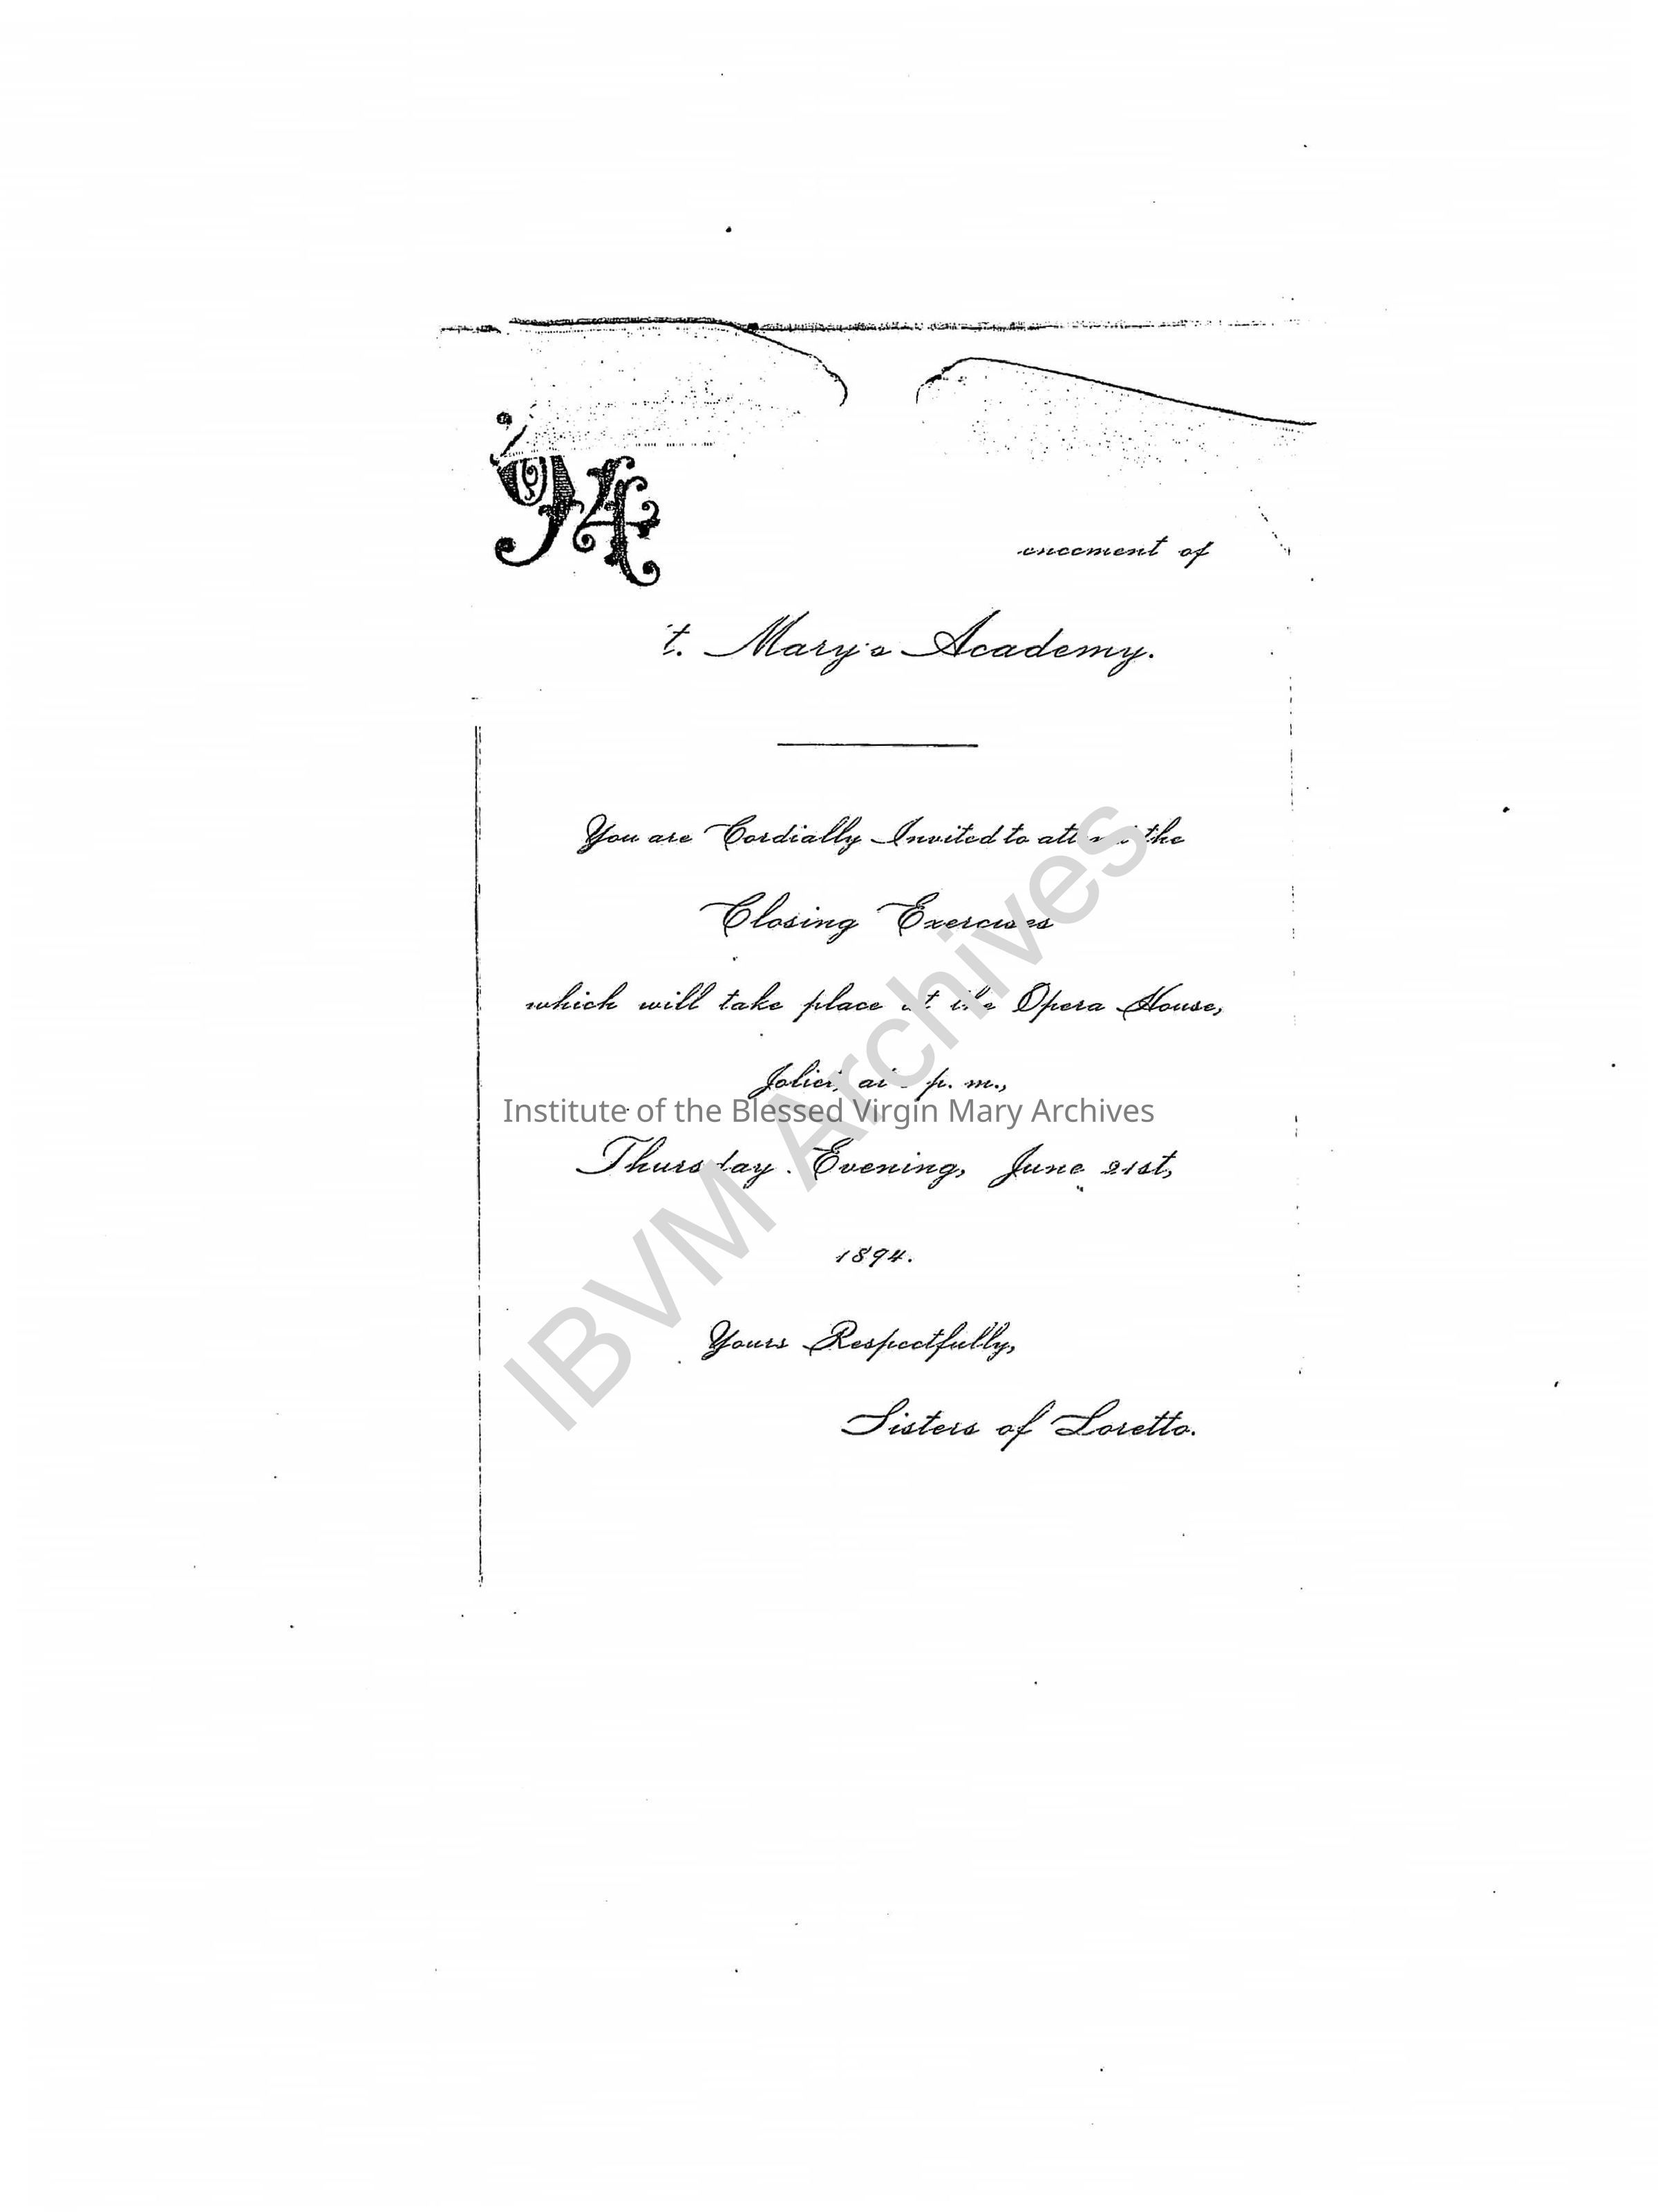 '94
encement of
t. Mary's Academy.
You are Cordially Invited to the
Closing Exercises
which will take place at the Opera House,
Joliet, at p. m.,
Institute of the Blessed Virgin Mary Archives
Thursday Evening, June 21st,
1894.
Yours Respectfully,
Sisters of Loretto.
IBVM Archives